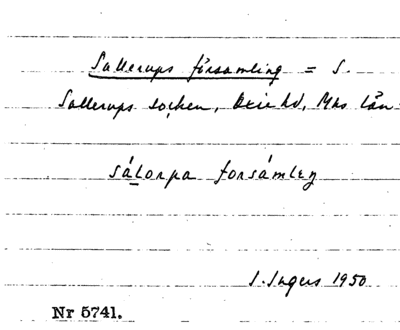 Sallerups församling = S.
Sallerups socken, Oxie hd, Mhs län
sálorpa forsámleŋ
S. Ingers 1950
Nr 5741.